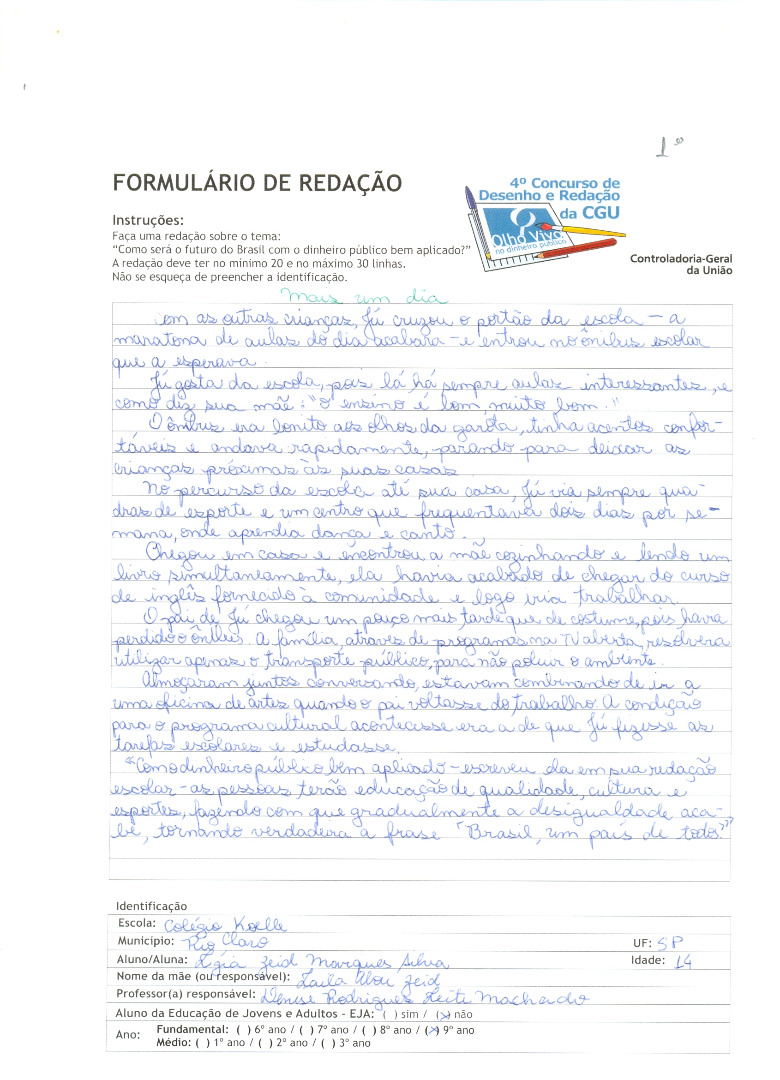 1º
FORMULÁRIO DE REDAÇÃO
4º Concurso de
Desenho e Redação
da CGU
Olho Vivo
no dinheiro público
Controladoria-Geral
da União
Instruções:
Faça uma redação sobre o tema:
“Como será o futuro do Brasil com o dinheiro público bem aplicado?”
A redação deve ter no mínimo 20 e no máximo 30 linhas.
Não se esqueça de preencher a identificação.
Mais um dia
om as outras crianças, Jú cruzou o portão da escola – a
maratona de aulas do dia acabara – e entrou no ônibus escolar
que a esperava.
Jú gosta da escola, pois lá há sempre aulas interessantes, e
como diz sua mãe: "o ensino é bom, muito bom."
O ônibus era bonito aos olhos da garota, tinha acentos confor-
táveis e andava rapidamente, parando para deixar as
crianças próximas às suas casas.
No percurso da escola até sua casa, Jú via sempre qua-
dras de esporte e um centro que frequentava dois dias por se-
mana, onde aprendia dança e canto.
Chegou em casa e encontrou a mãe cozinhando e lendo um
livro simultaneamente, ela havia acabado de chegar do curso
de inglês fornecido à comunidade e logo iria trabalhar.
O pai de Jú chegou um pouco mais tarde que de costume, pois havia
perdido o ônibus. A família, através de programas na TV aberta, resolvera
utilizar apenas o transporte público, para não poluir o ambiente.
Almoçaram juntos conversando, estavam combinando de ir a
uma oficina de artes quando o pai voltasse do trabalho. A condição
para o programa cultural acontecesse era a de que Jú fizesse as
tarefas escolares e estudasse.
"Com o dinheiro público bem aplicado – escreveu ela em sua redação
escolar – as pessoas terão educação de qualidade, cultura e
esportes, fazendo com que gradualmente a desigualdade aca-
be, tornando verdadeira a frase 'Brasil, um país de todos'."
Identificação
Escola: Colégio Koelle
Município: Rio Claro UF: SP
Aluno/Aluna: Lígia Zeid Marques Silva Idade: 14
Nome da mãe (ou responsável): Laila Abou Zeid
Professor(a) responsável: Denise Rodrigues Leite Machado
Aluno da Educação de Jovens e Adultos - EJA: ( ) sim / (x) não
Ano: Fundamental: ( ) 6º ano / ( ) 7º ano / ( ) 8º ano / (x) 9º ano
Médio: ( ) 1º ano / ( ) 2º ano / ( ) 3º ano